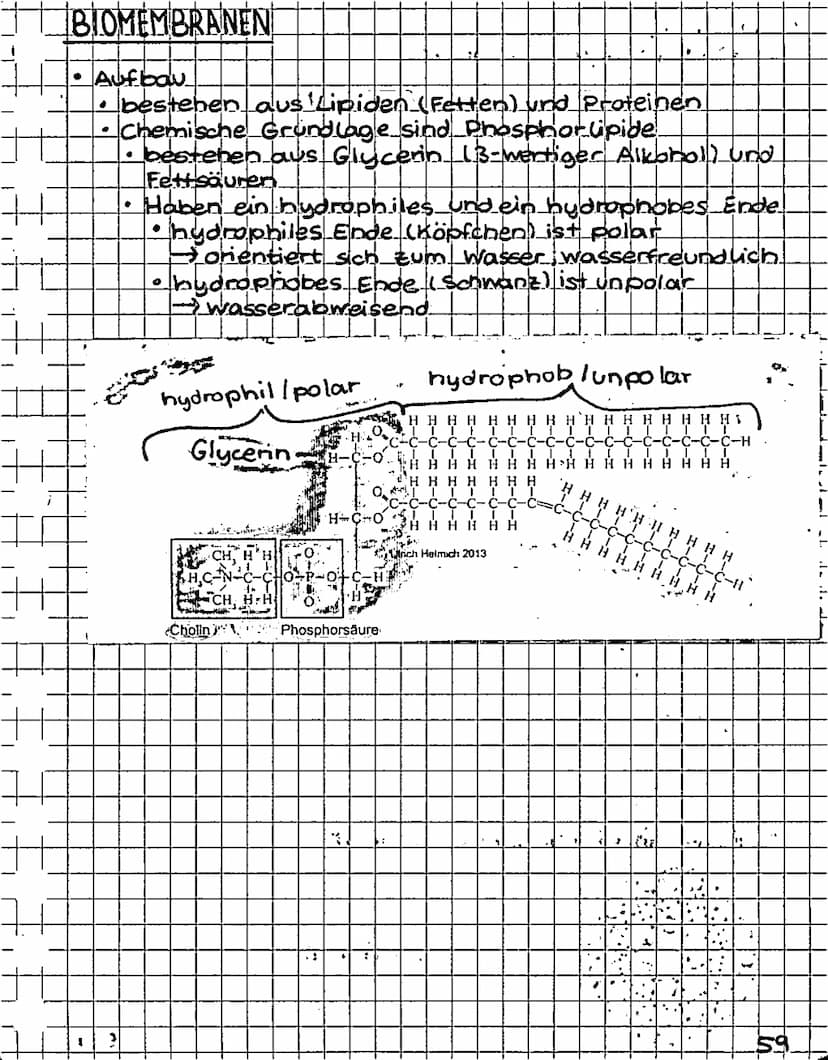 BIOMEMBRANEN
• Aufbau
• bestehen aus Lipiden (Fetten) und Proteinen
• Chemische Grundlage sind Phosphorlipide
• bestehen aus Glycerin (3-wertiger Alkohol) und
Fettsäuren
• Haben ein hydrophiles und ein hydrophobes Ende
• hydrophiles Ende (Köpfchen) ist polar
→ orientiert sich zum Wasser; wasserfreundlich
• hydrophobes Ende (Schwanz) ist unpolar
→ wasserabweisend
hydrophil/polar
hydrophob/unpolar
Glycerin
Ulrich Helmich 2013
Cholin
Phosphorsäure
59